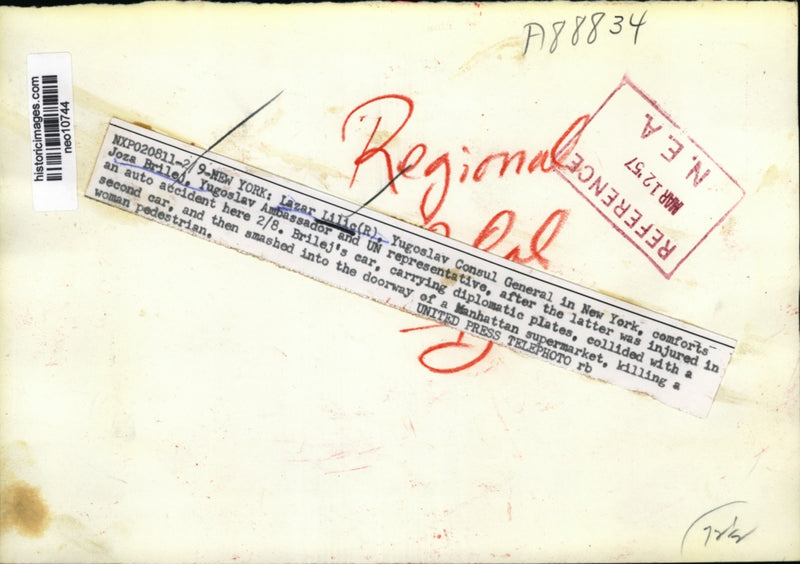 A88834
historicimages.com
neo10744
Regional
REFERENCE
MAR 12 '57
N. E. A.
NXP020811-2/9-NEW YORK: Lazar Lilic(R), Yugoslav Consul General in New York, comforts
Joza Brilej, Yugoslav Ambassador and UN representative, after the latter was injured in
an auto accident here 2/8. Brilej's car, carrying diplomatic plates, collided with a
second car, and then smashed into the doorway of a Manhattan supermarket, killing a
woman pedestrian.
UNITED PRESS TELEPHOTO rb